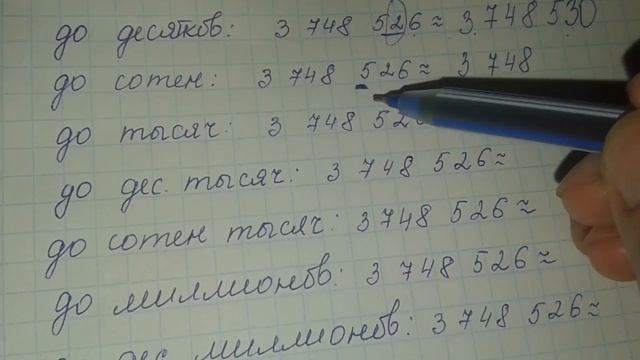 до десятков: 3 748 526 ≈ 3 748 530
до сотен: 3 748 526 ≈ 3 748
до тысяч: 3 748 52
до дес. тысяч: 3 748 526 ≈
до сотен тысяч: 3 748 526 ≈
до миллионов: 3 748 526 ≈
дес миллионов: 3 748 526 ≈